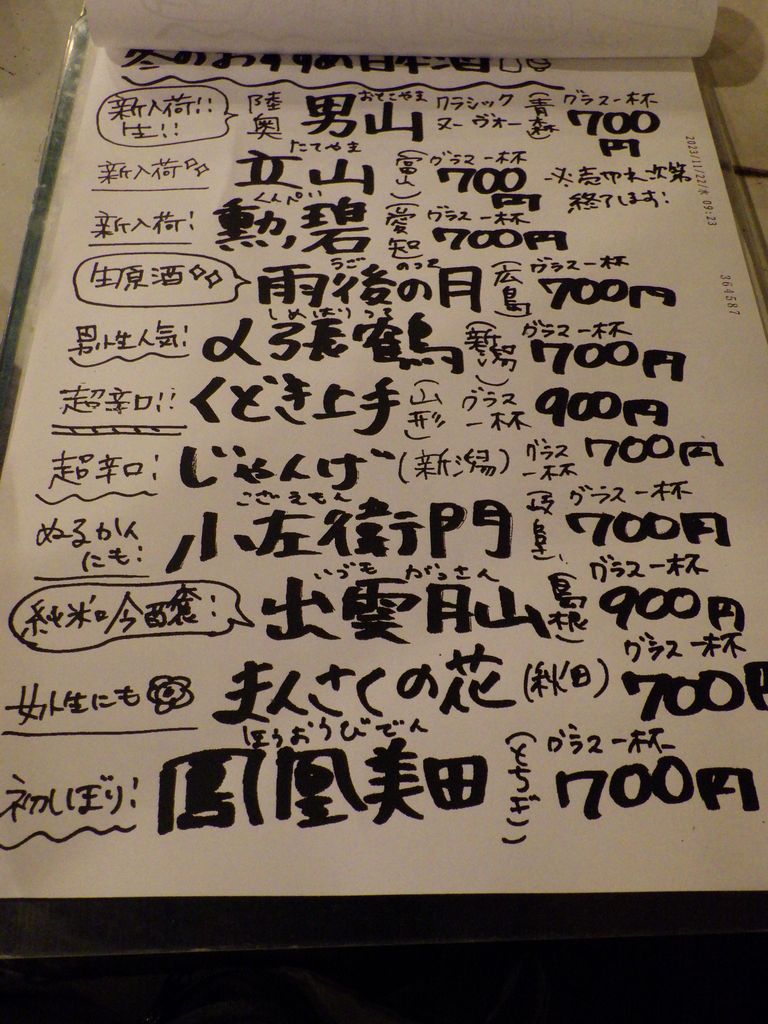 冬のおすすめ日本酒
新入荷!! 生!! 陸奥 男山 おとこやま クラシック ヌーヴォー (青森) グラス一杯 700円
新入荷 立山 たてやま (富山) グラス一杯 700円 ※売切れ次第終了します!
新入荷! 勲碧 くんぺい (愛知) グラス一杯 700円
生原酒 雨後の月 うごのつき (広島) グラス一杯 700円
男性人気! 〆張鶴 しめはりつる (新潟) グラス一杯 700円
超辛口!! くどき上手 (山形) グラス一杯 900円
超辛口! じゃんげ (新潟) グラス一杯 700円
ぬるかんにも! 小左衛門 こざえもん (岐阜) グラス一杯 700円
純米吟醸! 出雲月山 いづもがっさん (島根) グラス一杯 900円
女性にも まんさくの花 (秋田) グラス一杯 700円
初しぼり! 鳳凰美田 ほうおうびでん (とちぎ) グラス一杯 700円
2023/11/22/水 09:23
364587